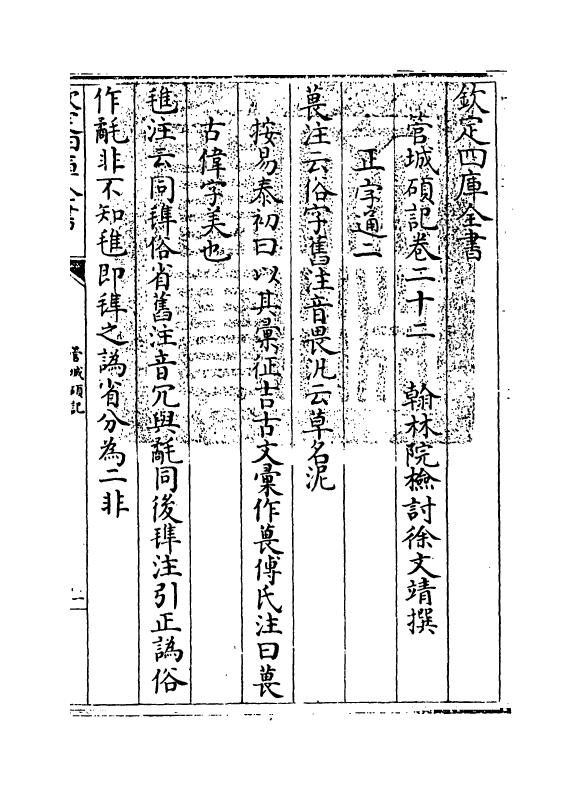 欽定四庫全書
管城碩記卷二十二 翰林院檢討徐文靖撰
正字通二
葨注云俗字舊注音畏汎云草名泥
按易泰初曰以其彙征吉古文彙作葨傅氏注曰葨
古偉字美也
注云同𣯍俗省舊注音冗與氄同後𣯍注引正譌俗
作氄非不知即𣯍之譌省分為二非
欽定四庫全書
管城碩記
一